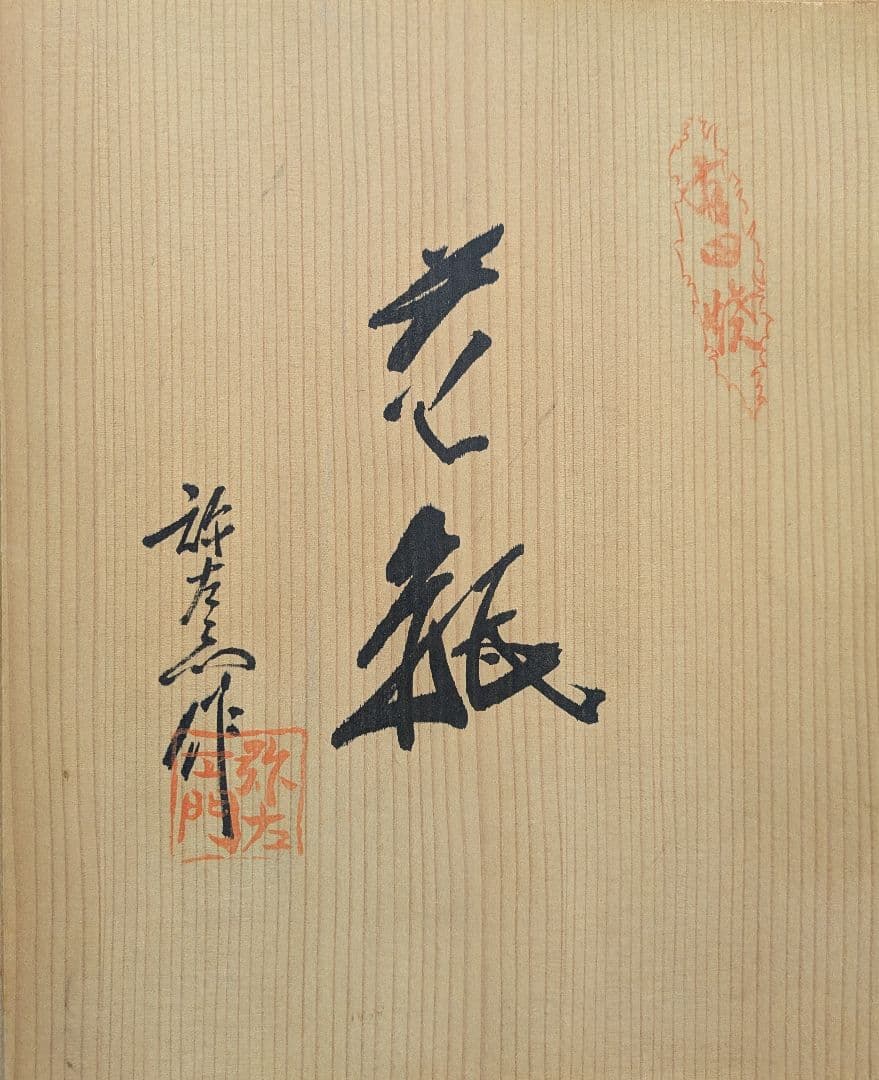 有田焼
花瓶
弥左ヱ門作
弥左
ヱ門